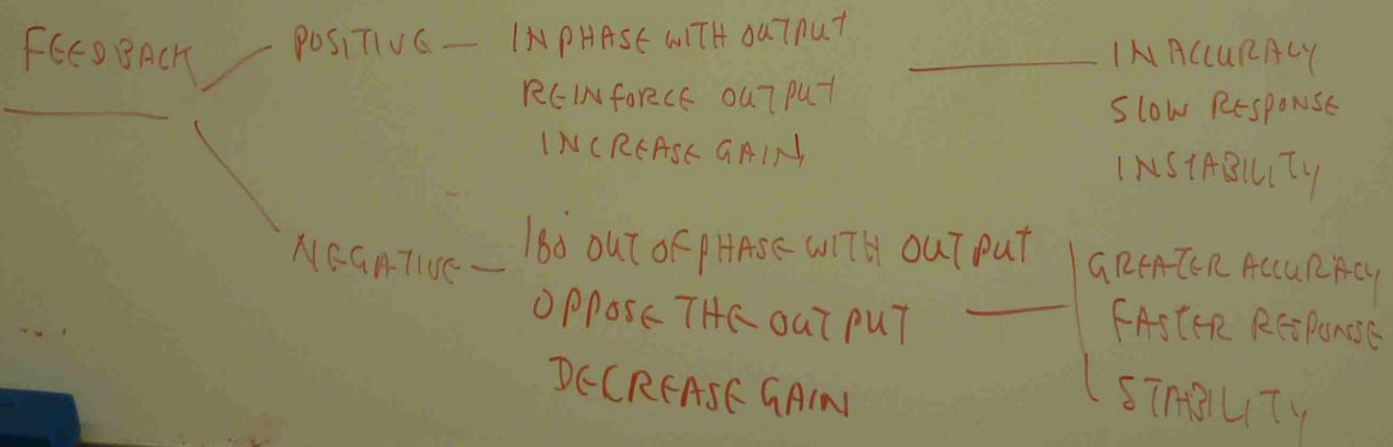 FEEDBACK
POSITIVE — IN PHASE WITH OUTPUT
REINFORCE OUTPUT
INCREASE GAIN
INACCURACY
SLOW RESPONSE
INSTABILITY
NEGATIVE — 180° OUT OF PHASE WITH OUTPUT
OPPOSE THE OUTPUT
DECREASE GAIN
GREATER ACCURACY
FASTER RESPONSE
STABILITY